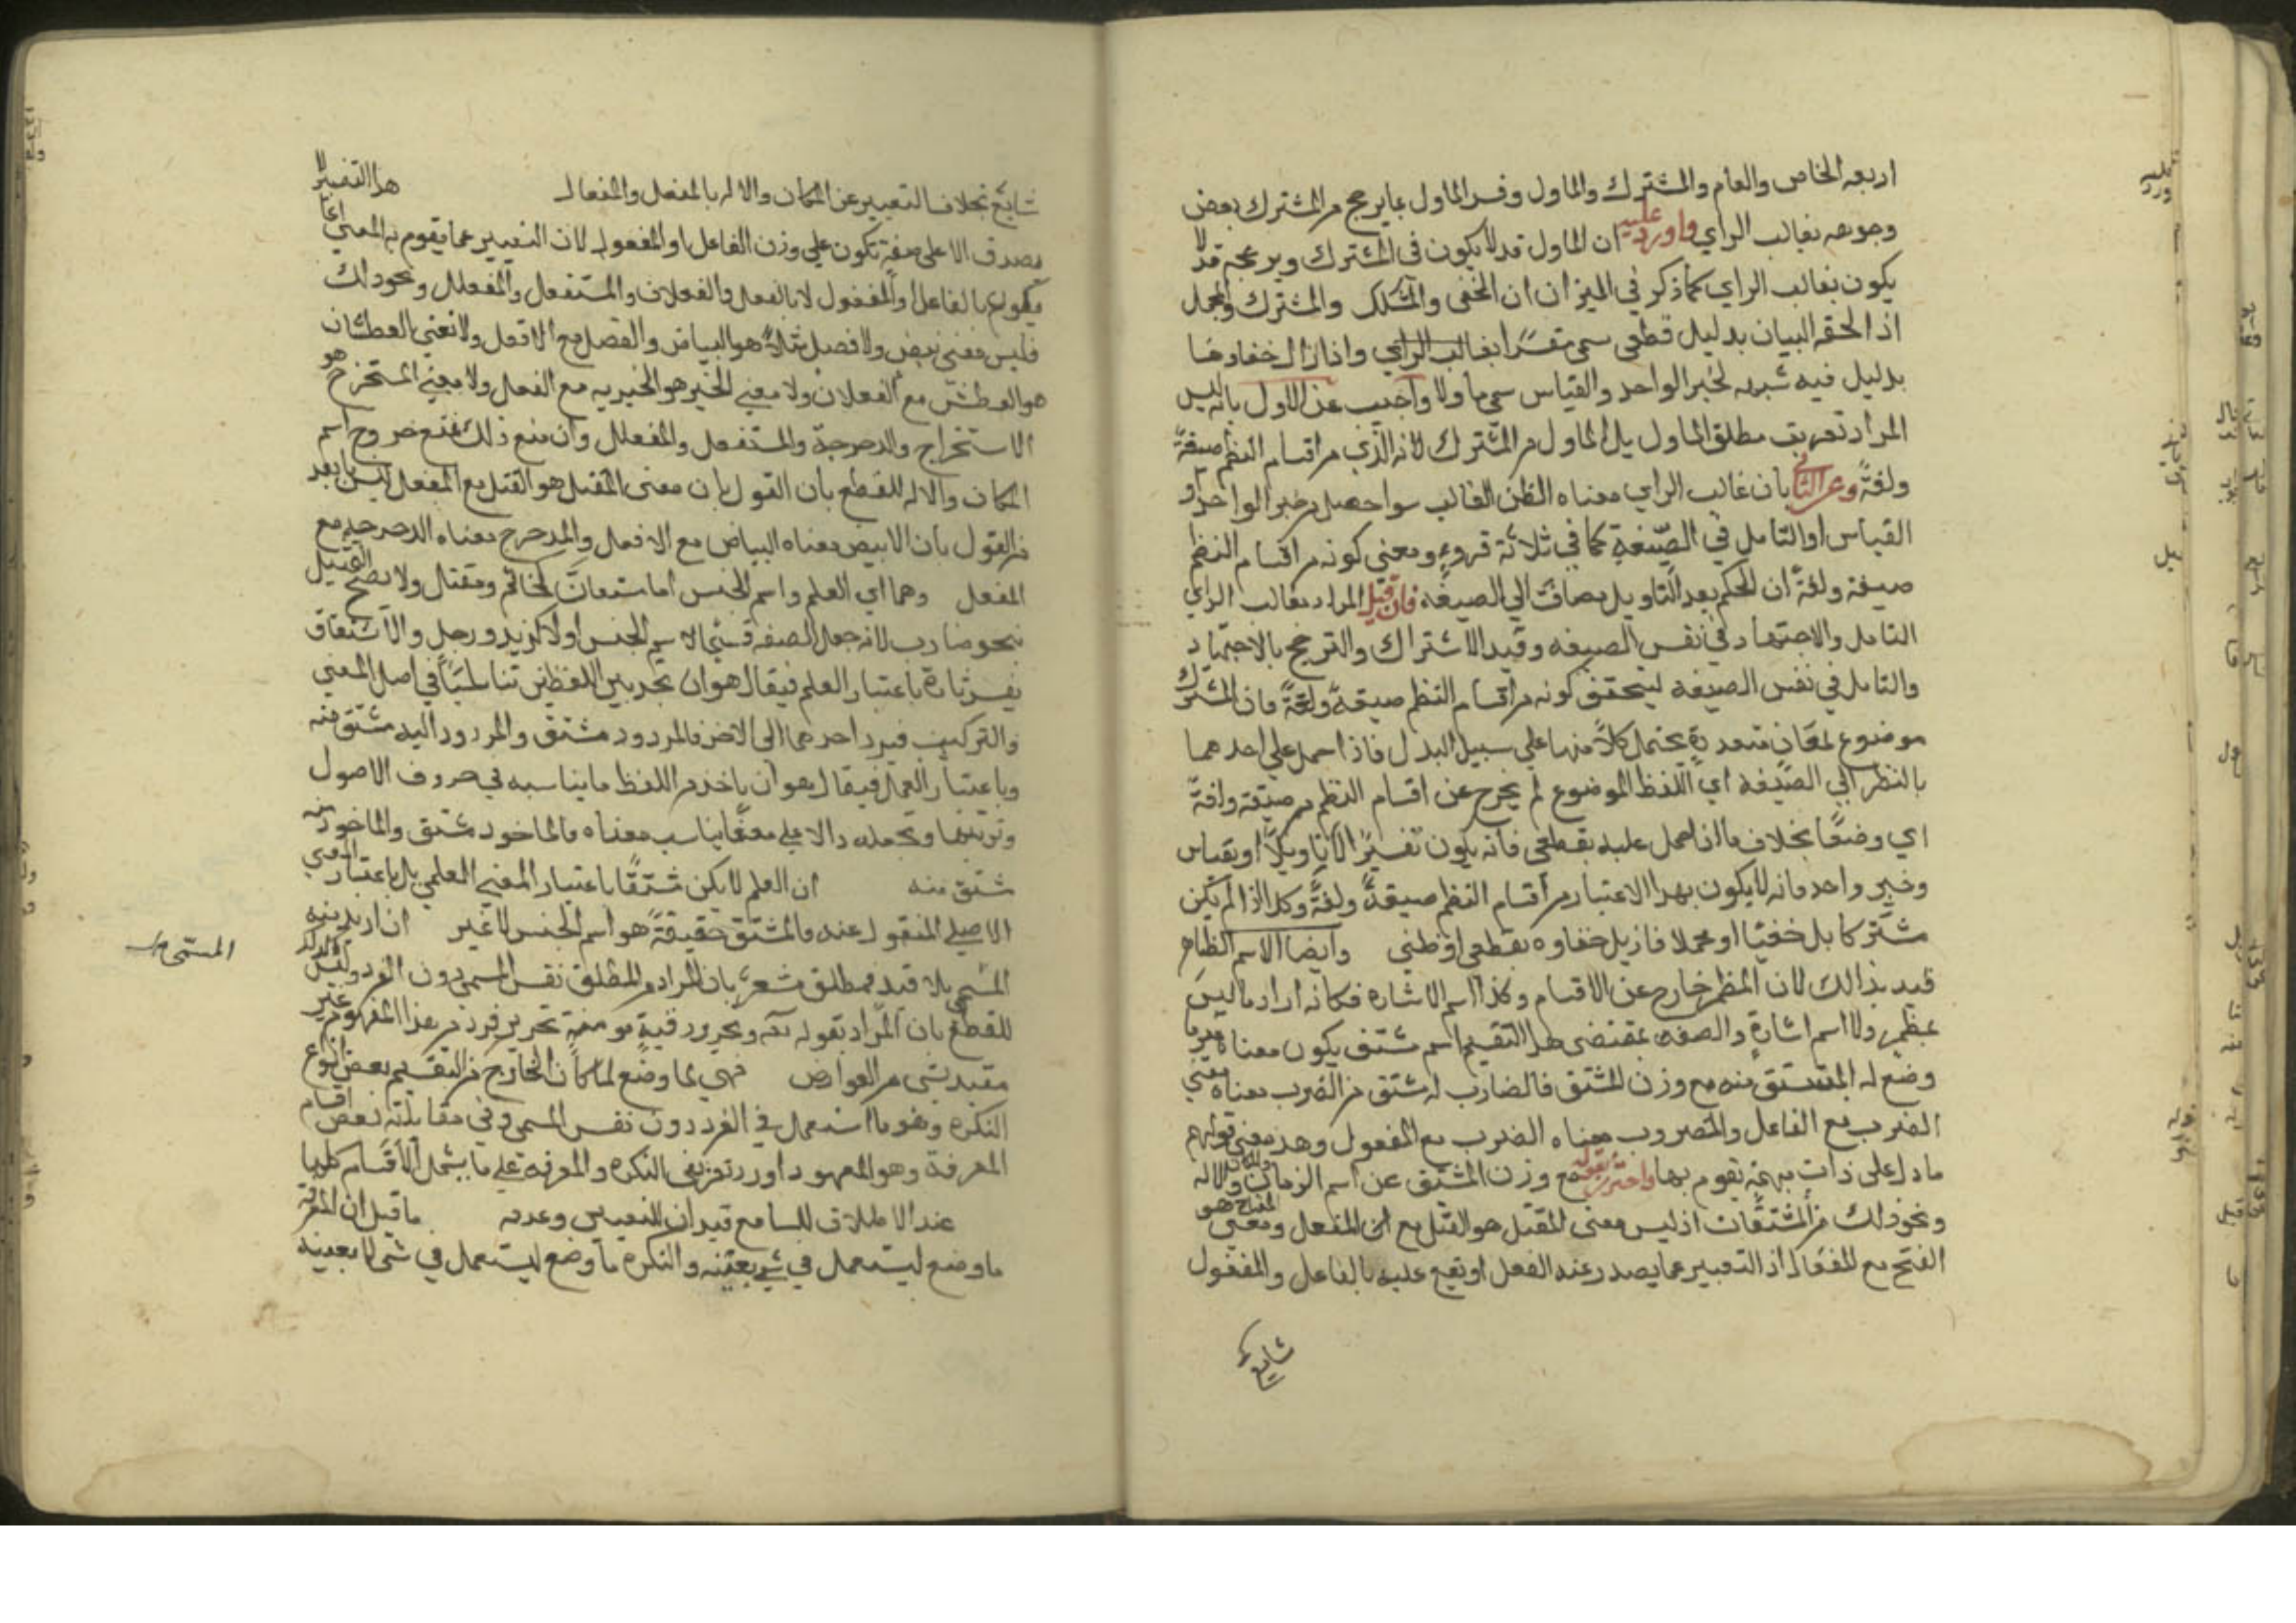 اربعه الخاص والعام والمشترك والماول وفسر الماول بما يرجح من المشترك بعض
وجوهه بغالب الراي واورد عليه ان الماول قد لا يكون في المشترك وترجحه قد لا
يكون بغالب الراي كما ذكر في الميزان ان الخفي والمشكل والمشترك والمجمل
اذا لحقه البيان بدليل قطعي سمي مفسرا بغالب الراي واذا زال خفاوها
بدليل فيه شبهه كخبر الواحد والقياس سمي ماولا واجيب عن الاول بانه ليس
المراد تعريف مطلق الماول بل الماول من المشترك لانه الذي من اقسام النظم صيغةً
ولغةً وعن الثاني بان غالب الراي معناه الظن الغالب سوا حصل من خبر الواحد او
القياس او التامل في الصّيغةِ كما في ثلاثة قروءٍ ومعنى كونه من اقسام النظم
صيغة ولغةً ان الحكم بعد التاويل مضافٌ الي الصيغه فان قيل المراد بغالب الراي
التامل والاجتهاد في نفس الصيغه وقيد الاشتراك والترجيح بالاجتهاد
والتامل في نفس الصيغه ليتحقق كونه من اقسام النظم صيغةً ولغةً فان المشترك
موضوع لمعانٍ متعددةٍ يحتمل كلاً منها علي سبيل البدل فاذا حمل علي احدهما
بالنظر الي الصّيغه اي اللفظ الموضوع لم يخرج عن اقسام النظم من صيغة ولغةً
اي وضعًا بخلاف ما اذا حمل عليه بقطعي فانه يكون تفسيرًا لا تاويلاً او بقياس
وخبر واحد فانه لا يكون بهذا الاعتبار من اقسام النظم صيغةً ولغةً وكذا اذا لم يكن
مشتركا بل خفيًا او مجملا فازيل خفاوه بقطعي او ظني وايضا الاسم الظاهر
قيد بذالك لان المظمر خارج عن الاقسام وكذا اسم الاشارة فكانه اراد ما ليس
بمظمر ولا اسم اشارةٍ والصفه بمقتضى هذا التقسيم اسم مشتق يكون معناه عين ما
وضع له المشتق منه مع وزن المشتق فالضارب اسم مشتق من الضرب معناه معني
الضرب مع الفاعل والمضروب معناه الضرب مع المفعول وهذا معني قولهم
ما دل على ذات مبهمةٍ يقوم بها واحترز بقوله مع وزن المشتق عن اسم الزمان والمكان والاله
ونحو ذلك من المشتقات اذ ليس معنى المقتل هو القتل مع المفعل ومعنى المفتاح هو
الفتح مع المفعال اذ التعبير عما يصدر عنه الفعل او يقع عليه بالفاعل والمفعول
شايع
شايع بخلاف التعبير عن المكان والاله بالمفعل والمفعال هذا التفسير لا
يصدق الا على صفةٍ تكون علي وزن الفاعل او المفعول لان التعبير عما يقوم به المعني انما
يكون بالفاعل او المفعول لا بالفعل والفعلان والمستفعل والمفعلل ونحو ذلك
فليس معني ابيض ولا افصل مثلاً هو البياض والفصل مع الافعل ولا معني العطشان
هو العطش مع الفعلان ولا معني الخير هو الخيرية مع الفعل ولا معني المستخرج هو
الاستخراج والدحرجة والمستفعل والمفعلل وان منع ذلك يمنع خروج اسم
المكان والاله للقطع بان القول بان معنى المقتل هو القتل مع المفعل ليس بابعد
من القول بان الابيض معناه البياض مع الافعل والمدحرج معناه الدحرجه مع
المفعل وهما اي العلم واسم الجنس اما مشتقان كخاتم ومقتال ولا يصح التمثيل
بنحو ضارب لانه جعل الصفه قسيما لاسم الجنس اولا كزيد ورجل والاشتقاق
يفسر تارة باعتبار العلم فيقال هو ان تجد بين اللفظين تناسبًا في اصل المعني
والتركيب فيرد احدهما الى الاخر فالمردود مشتق والمردود اليه مشتق منه
وباعتبار العمل فيقال هو ان ياخذ من اللفظ ما يناسبه في حروف الاصول
وترتيبها وتجعله دالا علي معنًى يناسب معناه فالماخوذ مشتق والماخوذ منه
مشتق منه ان العلم لا يكن مشتقًا باعتبار المعني العلمي بل باعتبار المعني
الاصلي المنقول عنه فالمشتق حقيقةً هو اسم الجنس لا غير ان اريد منه
المسمي بلا قيد فمطلق مشعر بان المراد من المطلق نفس المسمي دون الفرد وليس كذلك
للقطع بان المراد بقوله تعه وتحرير رقبةٍ مومنةٍ تحرير فرد من هذا المفهوم غير
مقيد بشي من العوارض فهي لما وضع لما كان الخارج من التقسيم بعض انواع
النكره وهو ما استعمل في الفرد دون نفس المسمي وفي مقابلته بعض اقسام
المعرفة وهو المعهود اورد تعريفي النكره والمعرفه علي ما يشمل الاقسام كلها
عند الاطلاق للسامع قيد ان للتعيين وعدمه ما قيل ان المعرفة
ما وضع ليستعمل في شي بعينه والنكره ما وضع ليستعمل في شي لا بعينه
المسمي